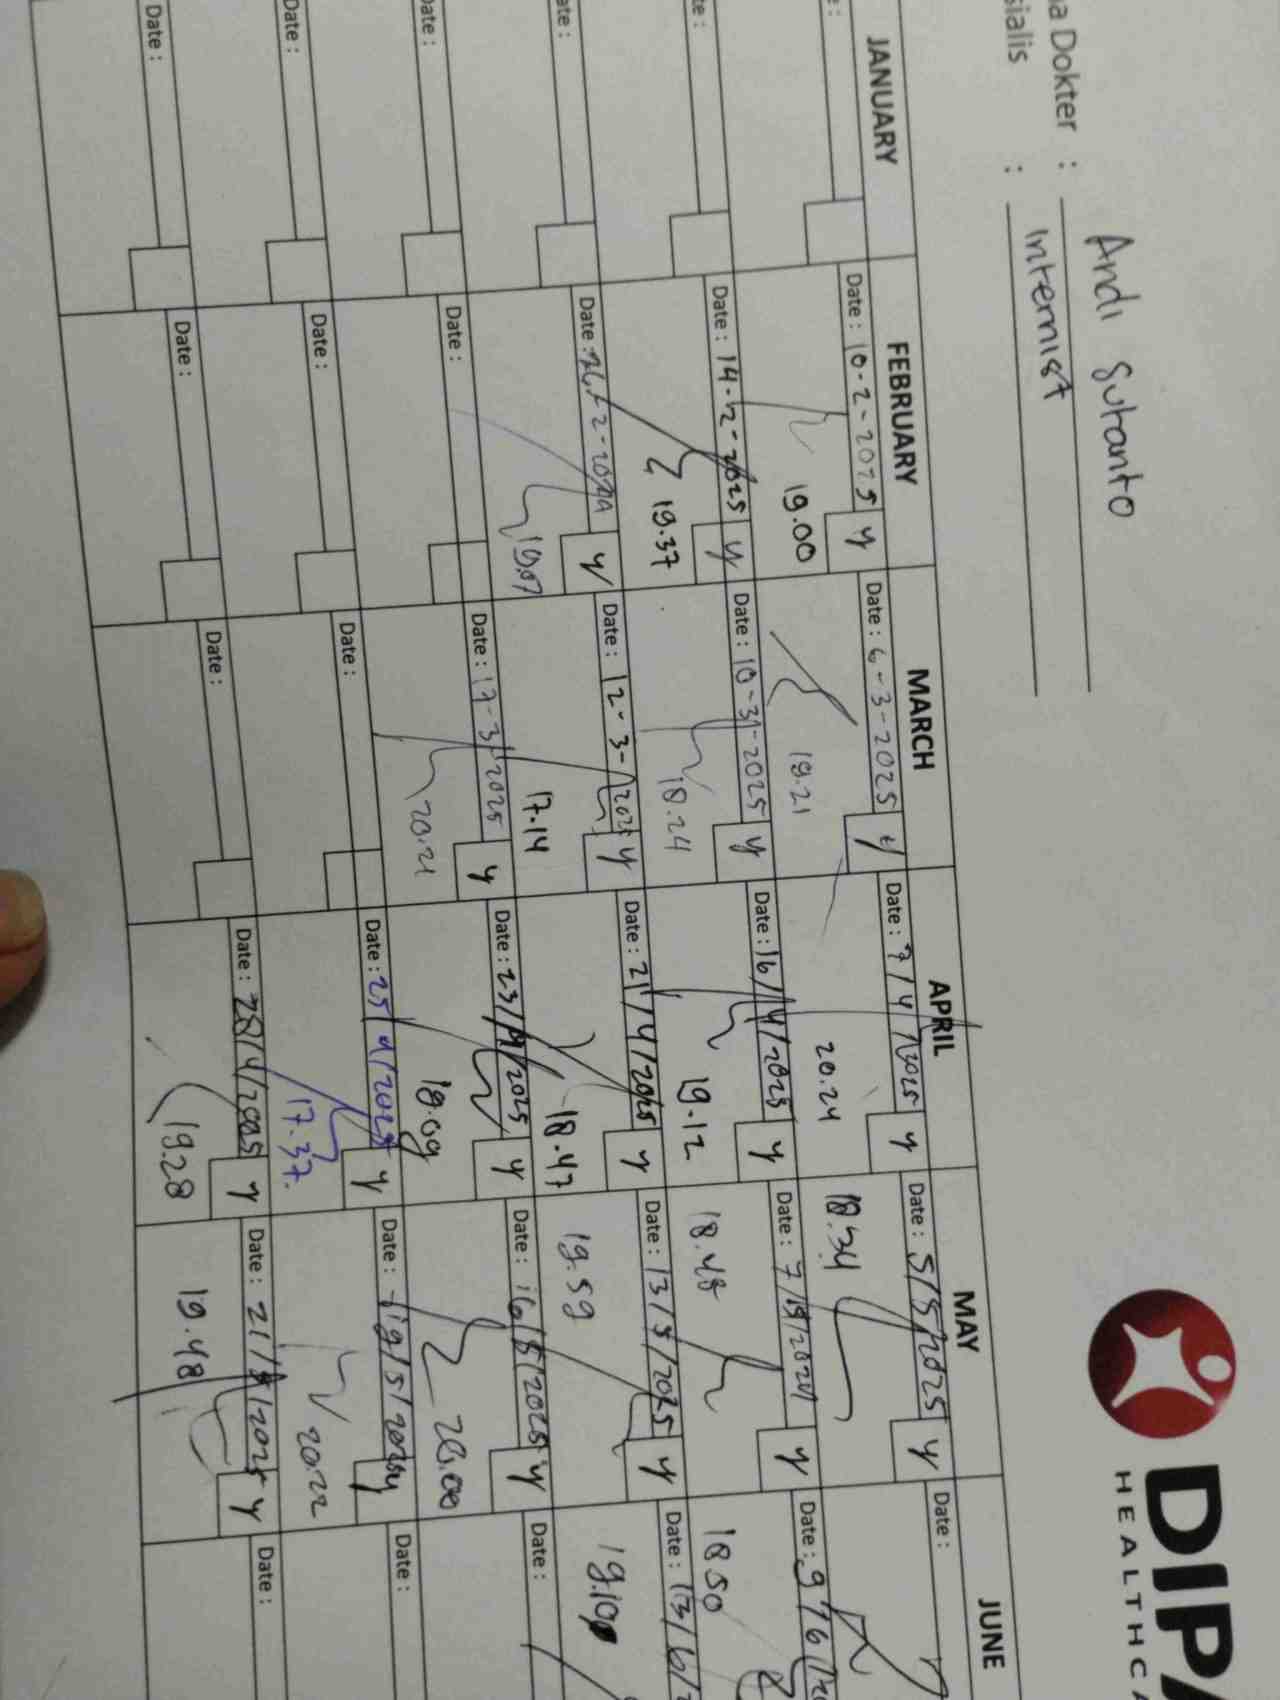 DIPA
HEALTHCA
a Dokter : Andi Sutanto
sialis : Internist
JANUARY FEBRUARY MARCH APRIL MAY JUNE
Date : 10-2-2025 y
Date : 6-3-2025 y
Date : 7/4/2025 y
Date : 5/5/2025 y
Date :
19.00
19.21
20.24
18.34
te :
Date : 14-2-2025 y
Date : 10-3-2025 y
Date : 16/4/2025 y
Date : 7/5/202 y
Date : 9/6/
19.37
18.24
19.12
18.48
18 50
ate :
Date : 26-2-20 y
Date : 12-3-2025 y
Date : 21/4/2025 y
Date : 13/5/2025 y
Date : 13/6/
19.07
17.14
18.47
19.59
19.10
Date :
Date :
Date : 17-3-2025 y
Date : 23/4/2025 y
Date : 16/5/2025 y
Date :
20.21
18.09
20.00
Date :
Date :
Date :
Date : 25/4/2025 y
Date : 19/5/20 y
Date :
17.37.
20.22
Date :
Date :
Date :
Date : 28/4/2025 y
Date : 21/5/2025 y
Date :
19.28
19.48